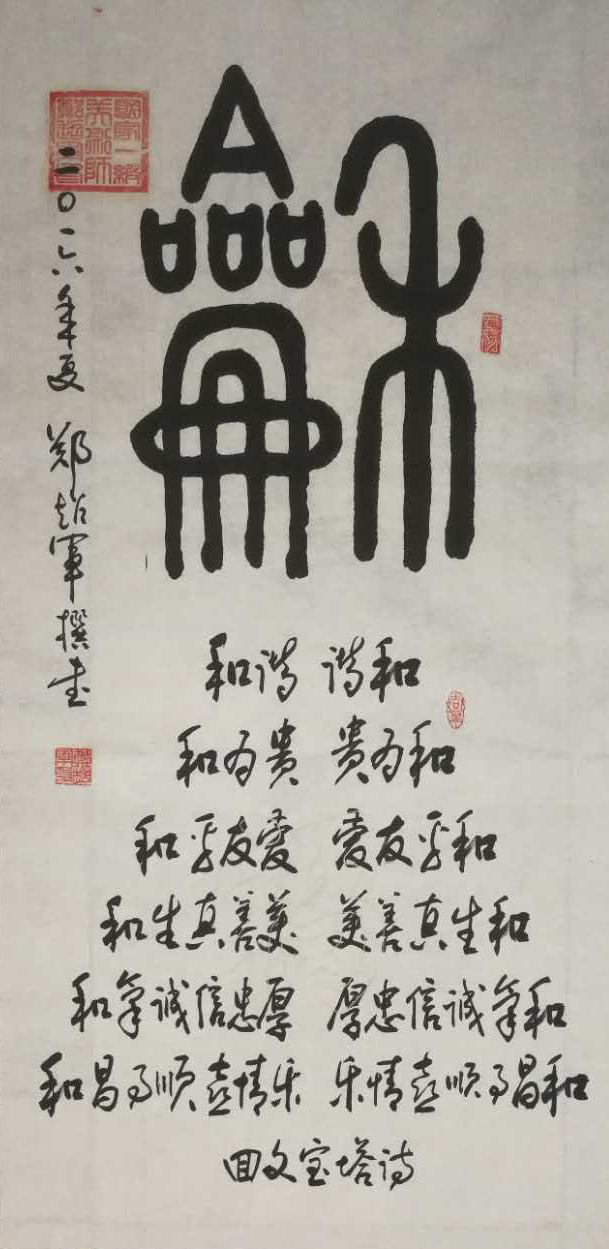 龢
和谐 谐和
和为贵 贵为和
和平友爱 爱友平和
和生真善美 美善真生和
和氣诚信忠厚 厚忠信诚氣和
和昌事顺喜情乐 乐情喜顺事昌和
回文宝塔诗
二〇一六年夏 郑超軍撰书
國家一級
美術師